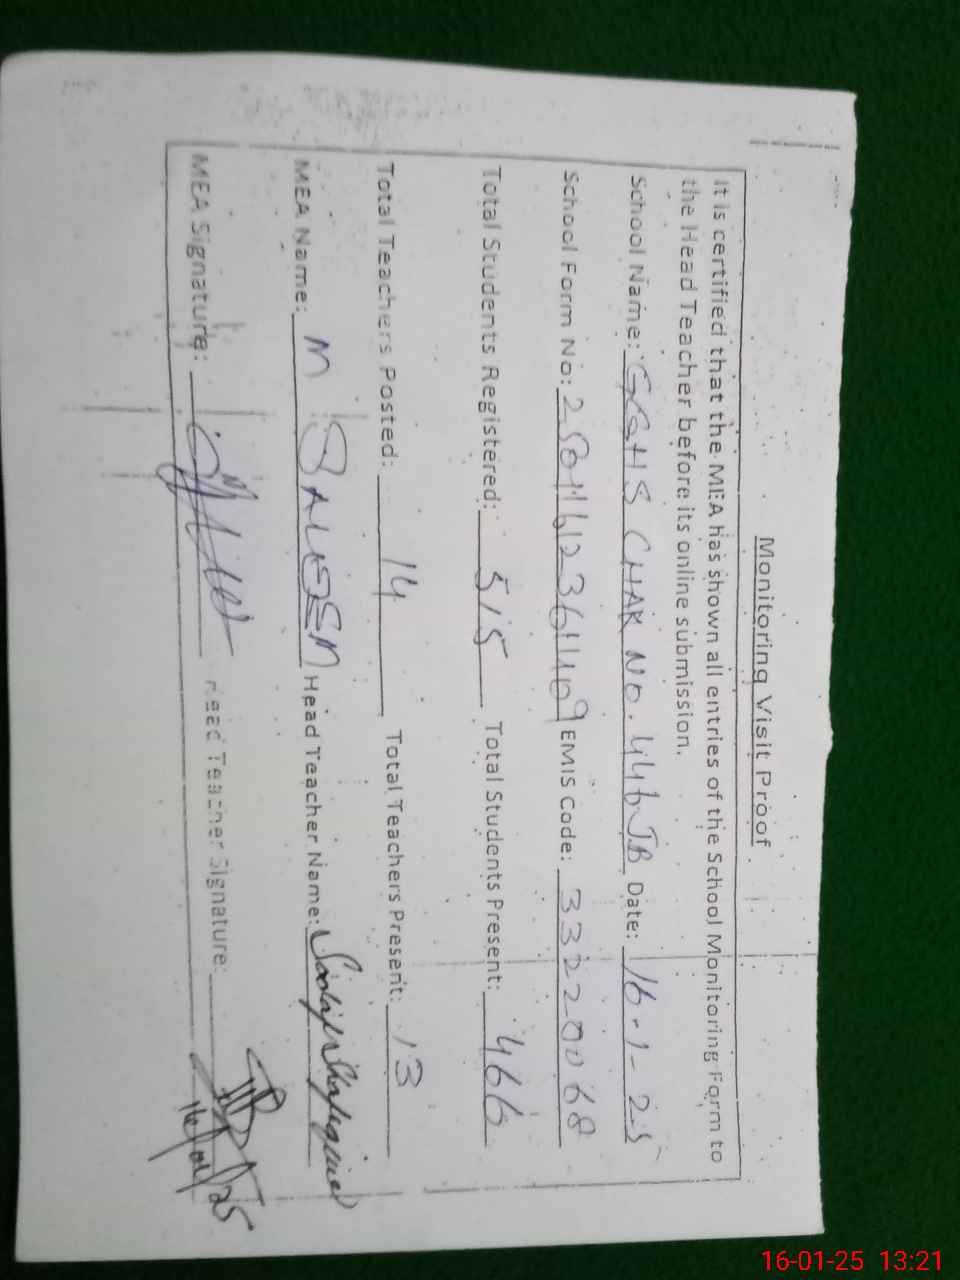 Monitoring Visit Proof
It is certified that the MEA has shown all entries of the School Monitoring Form to
the Head Teacher before its online submission.
School Name: GGHS CHAK NO. 446 JB Date: 16-1-25
School Form No: EMIS Code: 33220068
Total Students Registered: 515 Total Students Present: 466
Total Teachers Posted: 14 Total Teachers Present: 13
MEA Name: M SALEEM Head Teacher Name:
MEA Signature: Head Teacher Signature:
16/01/25
16-01-25 13:21